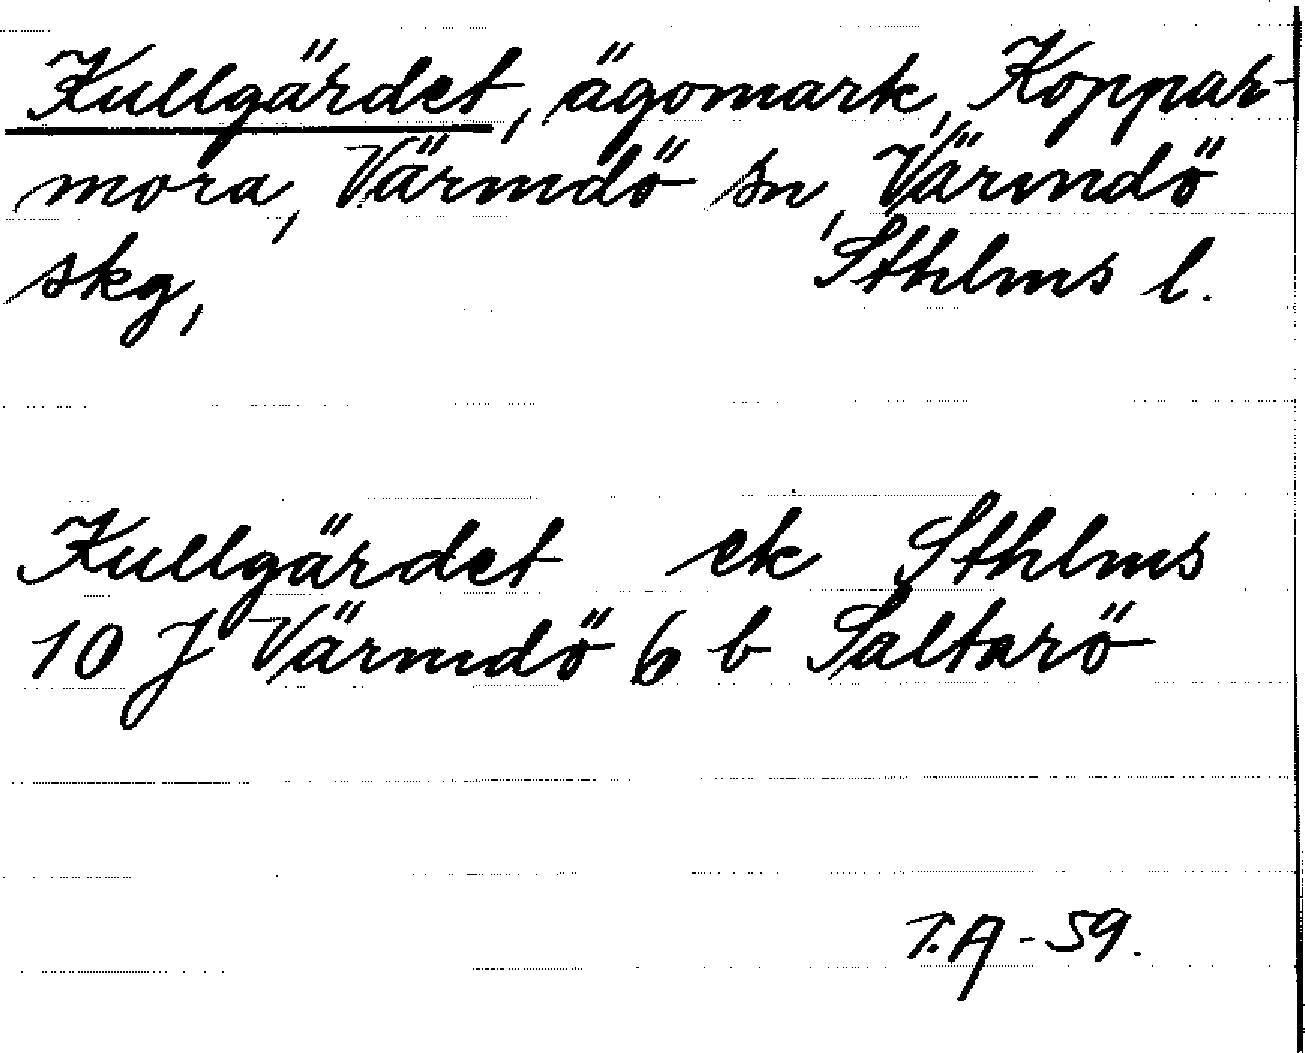 Kullgärdet, ägomark, Koppar-
mora, Värmdö sn, Värmdö
skg, Sthlms l.
Kullgärdet ek Sthlms
10 J Värmdö 6 b Saltarö
T.A-59.